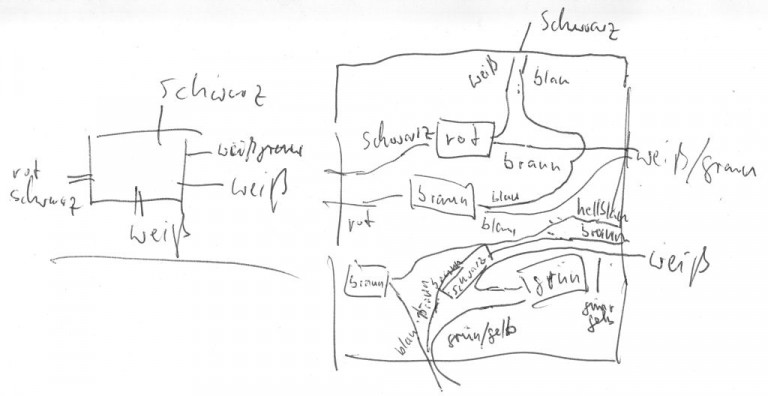 Schwarz
weiß
blau
Schwarz
weiß/grau
weiß
rot
schwarz
weiß
schwarz
rot
braun
weiß/grau
rot
braun
blau
blau
hellblau
braun
weiß
braun
braun
braun
schwarz
grün
grün
gelb
blau
grün/gelb